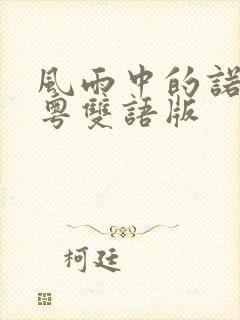 風雨中的諾
粵雙語版
柯廷